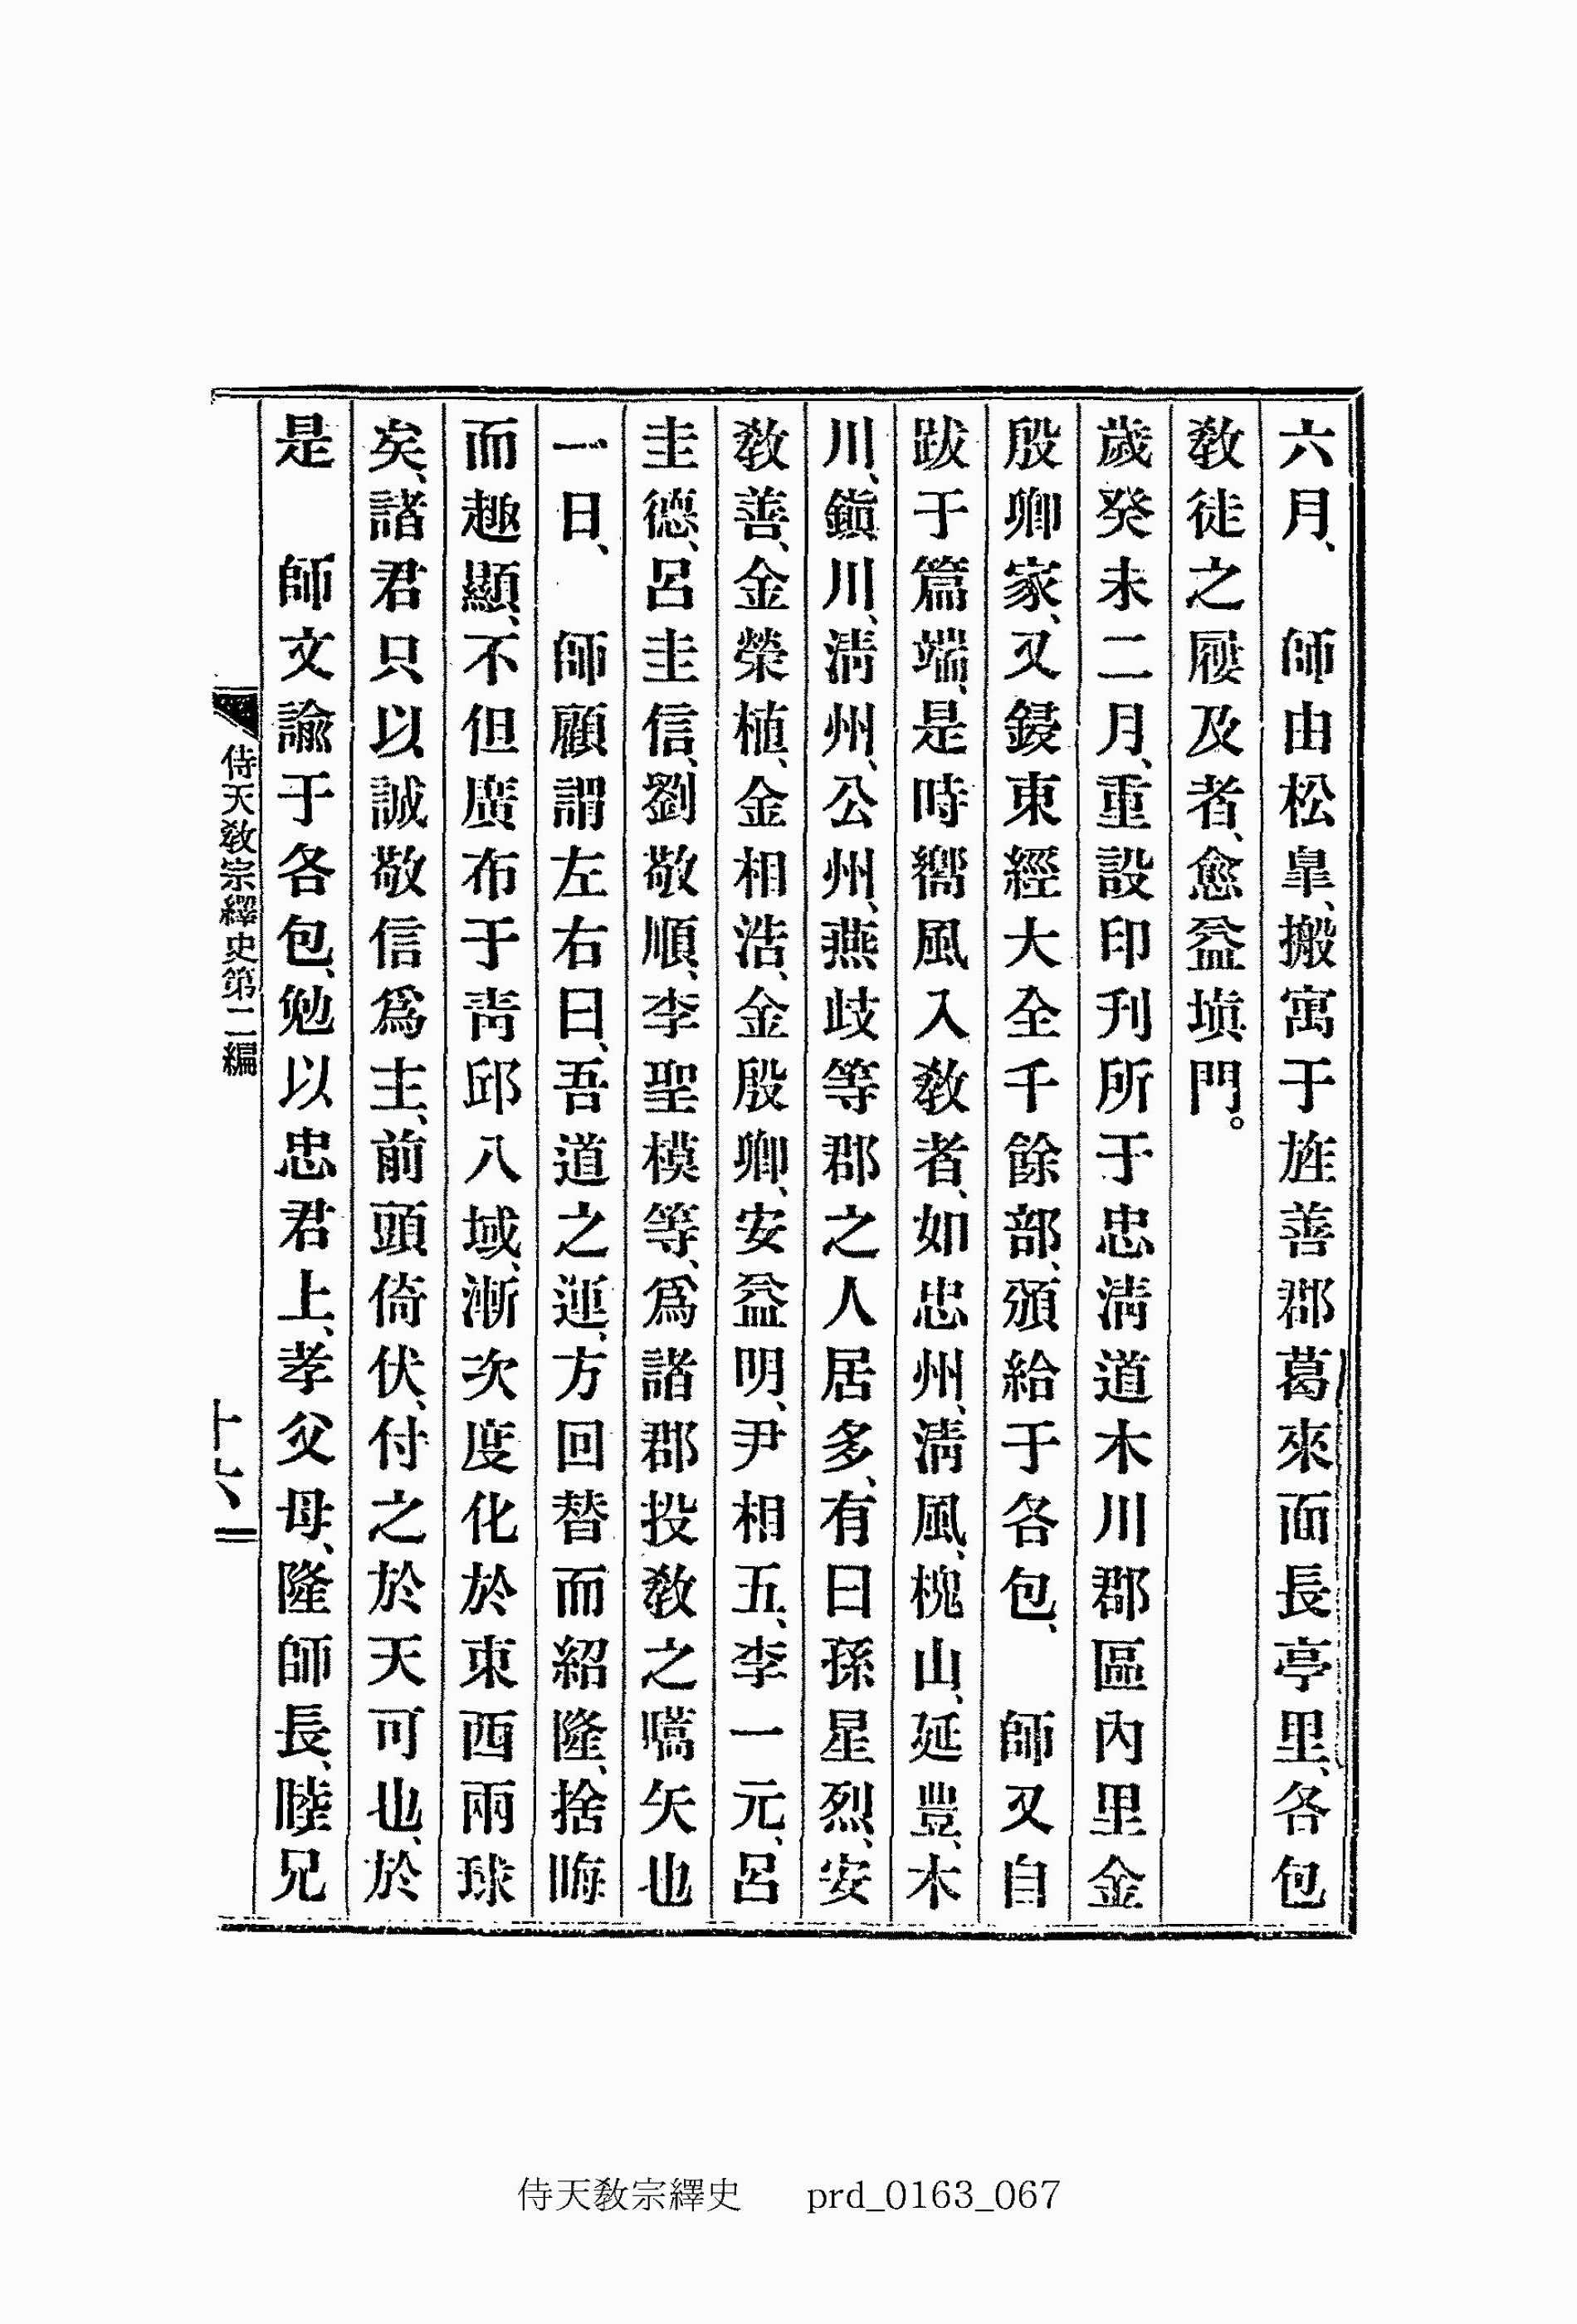 六月、　師由松皐、搬寓于旌善郡葛來面長亭里、各包
敎徒之屨及者、愈益塡門。
歲癸未二月、重設印刊所于忠淸道木川郡區內里金
殷卿家、又鋟東經大全千餘部、頒給于各包、　師又自
跋于篇端、是時嚮風入敎者、如忠州、淸風、槐山、延豊、木
川、鎭川、淸州、公州、燕歧等郡之人居多、有曰孫星烈、安
敎善、金榮植、金相浩、金殷卿、安益明、尹相五、李一元、呂
圭德、呂圭信、劉敬順、李聖模等、爲諸郡投敎之嚆矢也
一日、　師顧謂左右曰、吾道之運、方回替而紹隆、捨晦
而趣顯、不但廣布于靑邱八域、漸次度化於東西兩球
矣、諸君只以誠敬信爲主、前頭倚伏、付之於天可也、於
是　師文諭于各包、勉以忠君上、孝父母、隆師長、睦兄
侍天敎宗繹史第二編
十六
侍天敎宗繹史　prd_0163_067